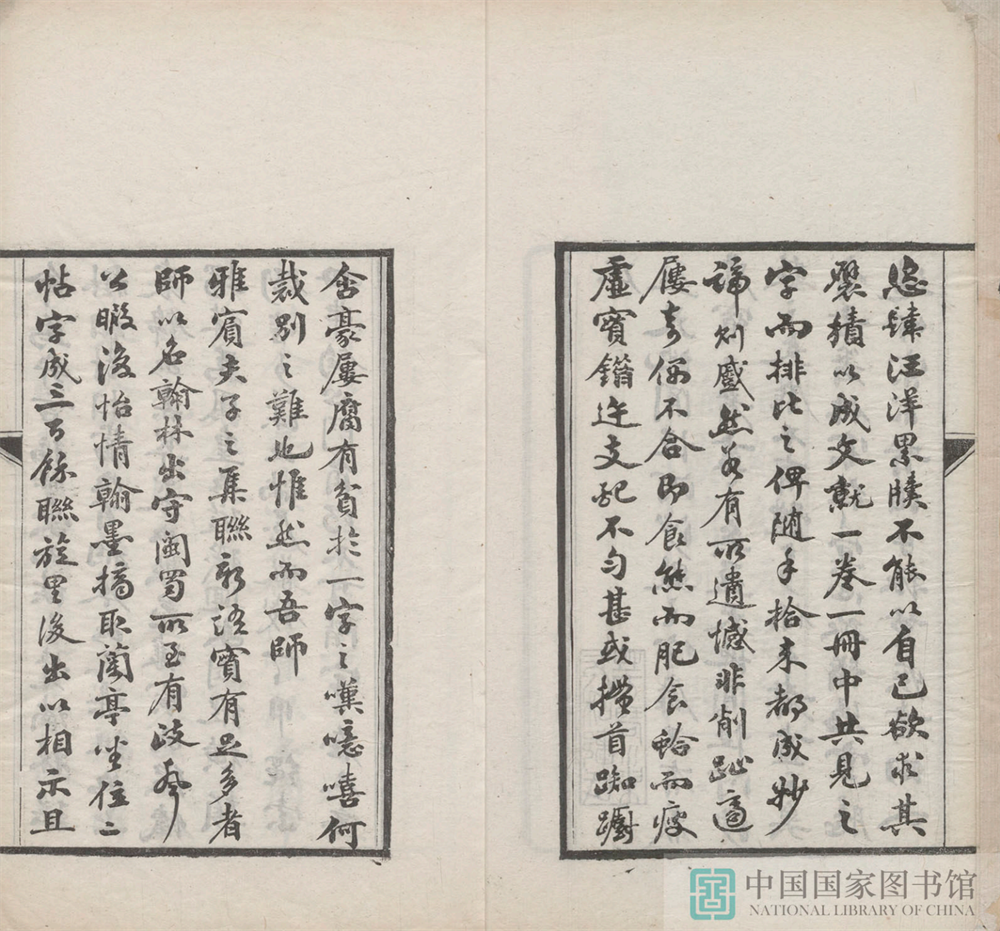 恣肆汪洋累牘不能以自已欲求其
襞積以成文就一卷一冊中共見之
字而排比之俾随手拾来都成妙
諦则慼然若有所遺憾非削趾適
屨奇偶不合即食熊而肥食蛤而瘦
虛實錯迕支配不勻甚或搔首踟躕
含豪屢腐有貧於一字之嘆噫嘻何
裁别之難也惟然而吾師
雅賓夫子之集聯新語實有足多者
師以名翰林出守閩蜀所至有政聲
公暇復怡情翰墨摘取蘭亭坐位二
帖字成三百餘聯旋里後出以相示且
中国国家图书馆
NATIONAL LIBRARY OF CHINA